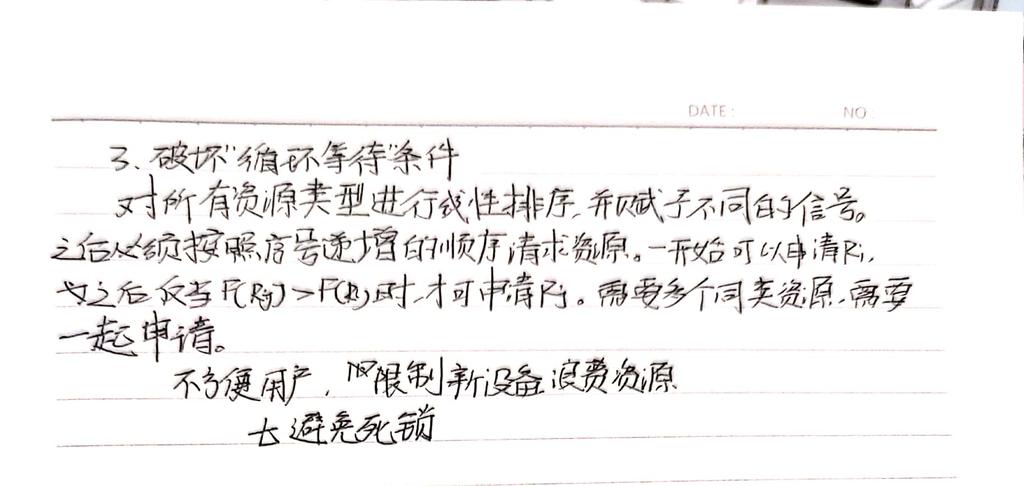 DATE: NO:
3、破坏"循环等待"条件
对所有资源类型进行线性排序,并赋予不同的信号。
之后必须按照序号递增的顺序请求资源。一开始可以申请Ri,
之后仅当F(Rj)>F(Ri)时,才可申请Rj。需要多个同类资源,需要
一起申请。
不方便用户,限制新设备浪费资源
七避免死锁